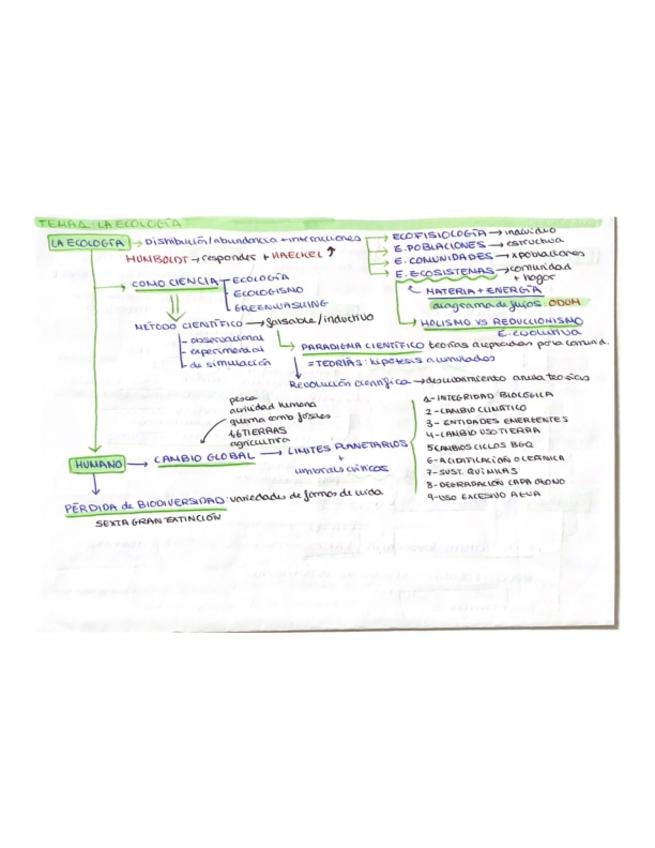 TEMA 1: LA ECOLOGÍA
LA ECOLOGÍA → Distribución/abundancia + interacciones
HUMBOLDT → responder + HAECKEL ↑
ECOFISIOLOGÍA → individuo
E. POBLACIONES → estructura
E. COMUNIDADES → xpoblaciones
E. ECOSISTEMAS → comunidad
+ hogar
MATERIA + ENERGÍA
diagrama de flujos: ODUM
HOLISMO VS REDUCCIONISMO
E. evolutiva
COMO CIENCIA
ECOLOGÍA
ECOLOGISMO
GREENWASHING
MÉTODO CIENTÍFICO → falsable/inductivo
- observacional
- experimental
- de simulación
PARADIGMA CIENTÍFICO teorías aceptadas por la comunid.
= TEORÍAS: hipótesis acumuladas
Revolución científica → descubrimiento anula teorías
pesca
actividad humana
quema comb fósiles
agricultura
HUMANO → CAMBIO GLOBAL → LIMITES PLANETARIOS
+
umbrales críticos
1- INTEGRIDAD BIOLÓGICA
2- CAMBIO CLIMÁTICO
3- ENTIDADES EMERGENTES
4- CAMBIO USO TIERRA
5 CAMBIOS CICLOS BGQ
6- ACIDIFICACIÓN OCEÁNICA
7- SUST. QUÍMICAS
8- DEGRADACIÓN CAPA OZONO
9- USO EXCESIVO AGUA
PÉRDIDA de BIODIVERSIDAD: variedades de formas de vida
SEXTA GRAN EXTINCIÓN